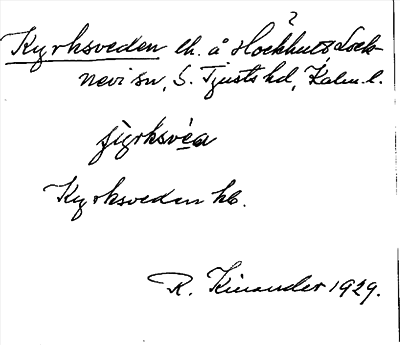 ?
Kyrksveden lh. å Hockhults Lock-
nevi sn, S. Tjusts hd, Kalm. l.
Kyrksveden hb.
R. Kinander 1929.